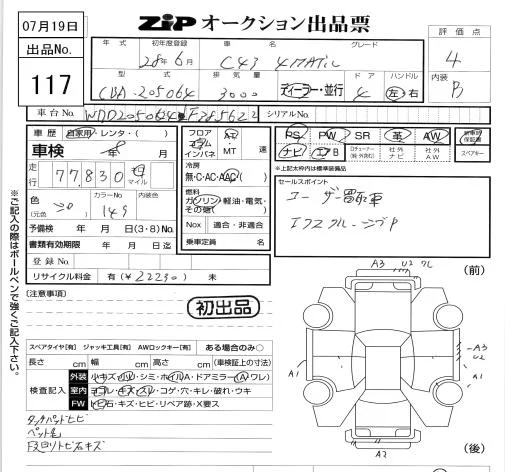 07月19日
ZIP オークション出品票
出品No.
117
年式 初年度登録 車名 グレード
28年6月 C43 4MATIC
型式 排気量 ドア ハンドル
CBA-205064 3000 ディーラー・並行 4 左・右
評価点
4
内装
B
車台No. WDD2050642F285622
シリアルNo.
車歴 自家用・レンタ・( )
車検 年 8月
走行 77,830 キロ マイル
色 (元色) カラーNo. 内装色
149
予備検 年 月 日(3・8)No.
書類有効期限 年 月 日迄
登録No.
リサイクル料金 有(¥22230) 未
フロア コラム インパネ AT・MT 速
冷房
無・C・AC・AAC
燃料
ガソリン・軽油・電気・その他( )
Nox 適合・非適合
乗車定員 名
PS PW SR 革 AW 新車時保証書
ナビ エアB ロクチューナー(純・外)対応 社外ナビ 社外AW スペアキー
※上記太枠内は標準装備品
セールスポイント
ユーザー買取車
エクスクルーシブP
※ご記入の際はボールペンで強くご記入下さい。
(注意事項)
初出品
スペアタイヤ[有] ジャッキ工具[有] AWロックキー[有] ある場合のみ○
長さ cm 幅 cm 高さ cm (車検証上の寸法)
検査記入 外装 小キズ・小凹・シミ・ホイルA・ドアミラー(A・ワレ)
室内 ヨゴレ・キズ・スレ・コゲ・穴・キレ・破れ・ウキ
FW トビ石・キズ・ヒビ・リペア跡・X要ス
タッチパッドヒビ
ペット毛
Fスロトビ石キズ
(前)
A3 U2 ワレ
A3
U2
A1
A1
A2
(後)